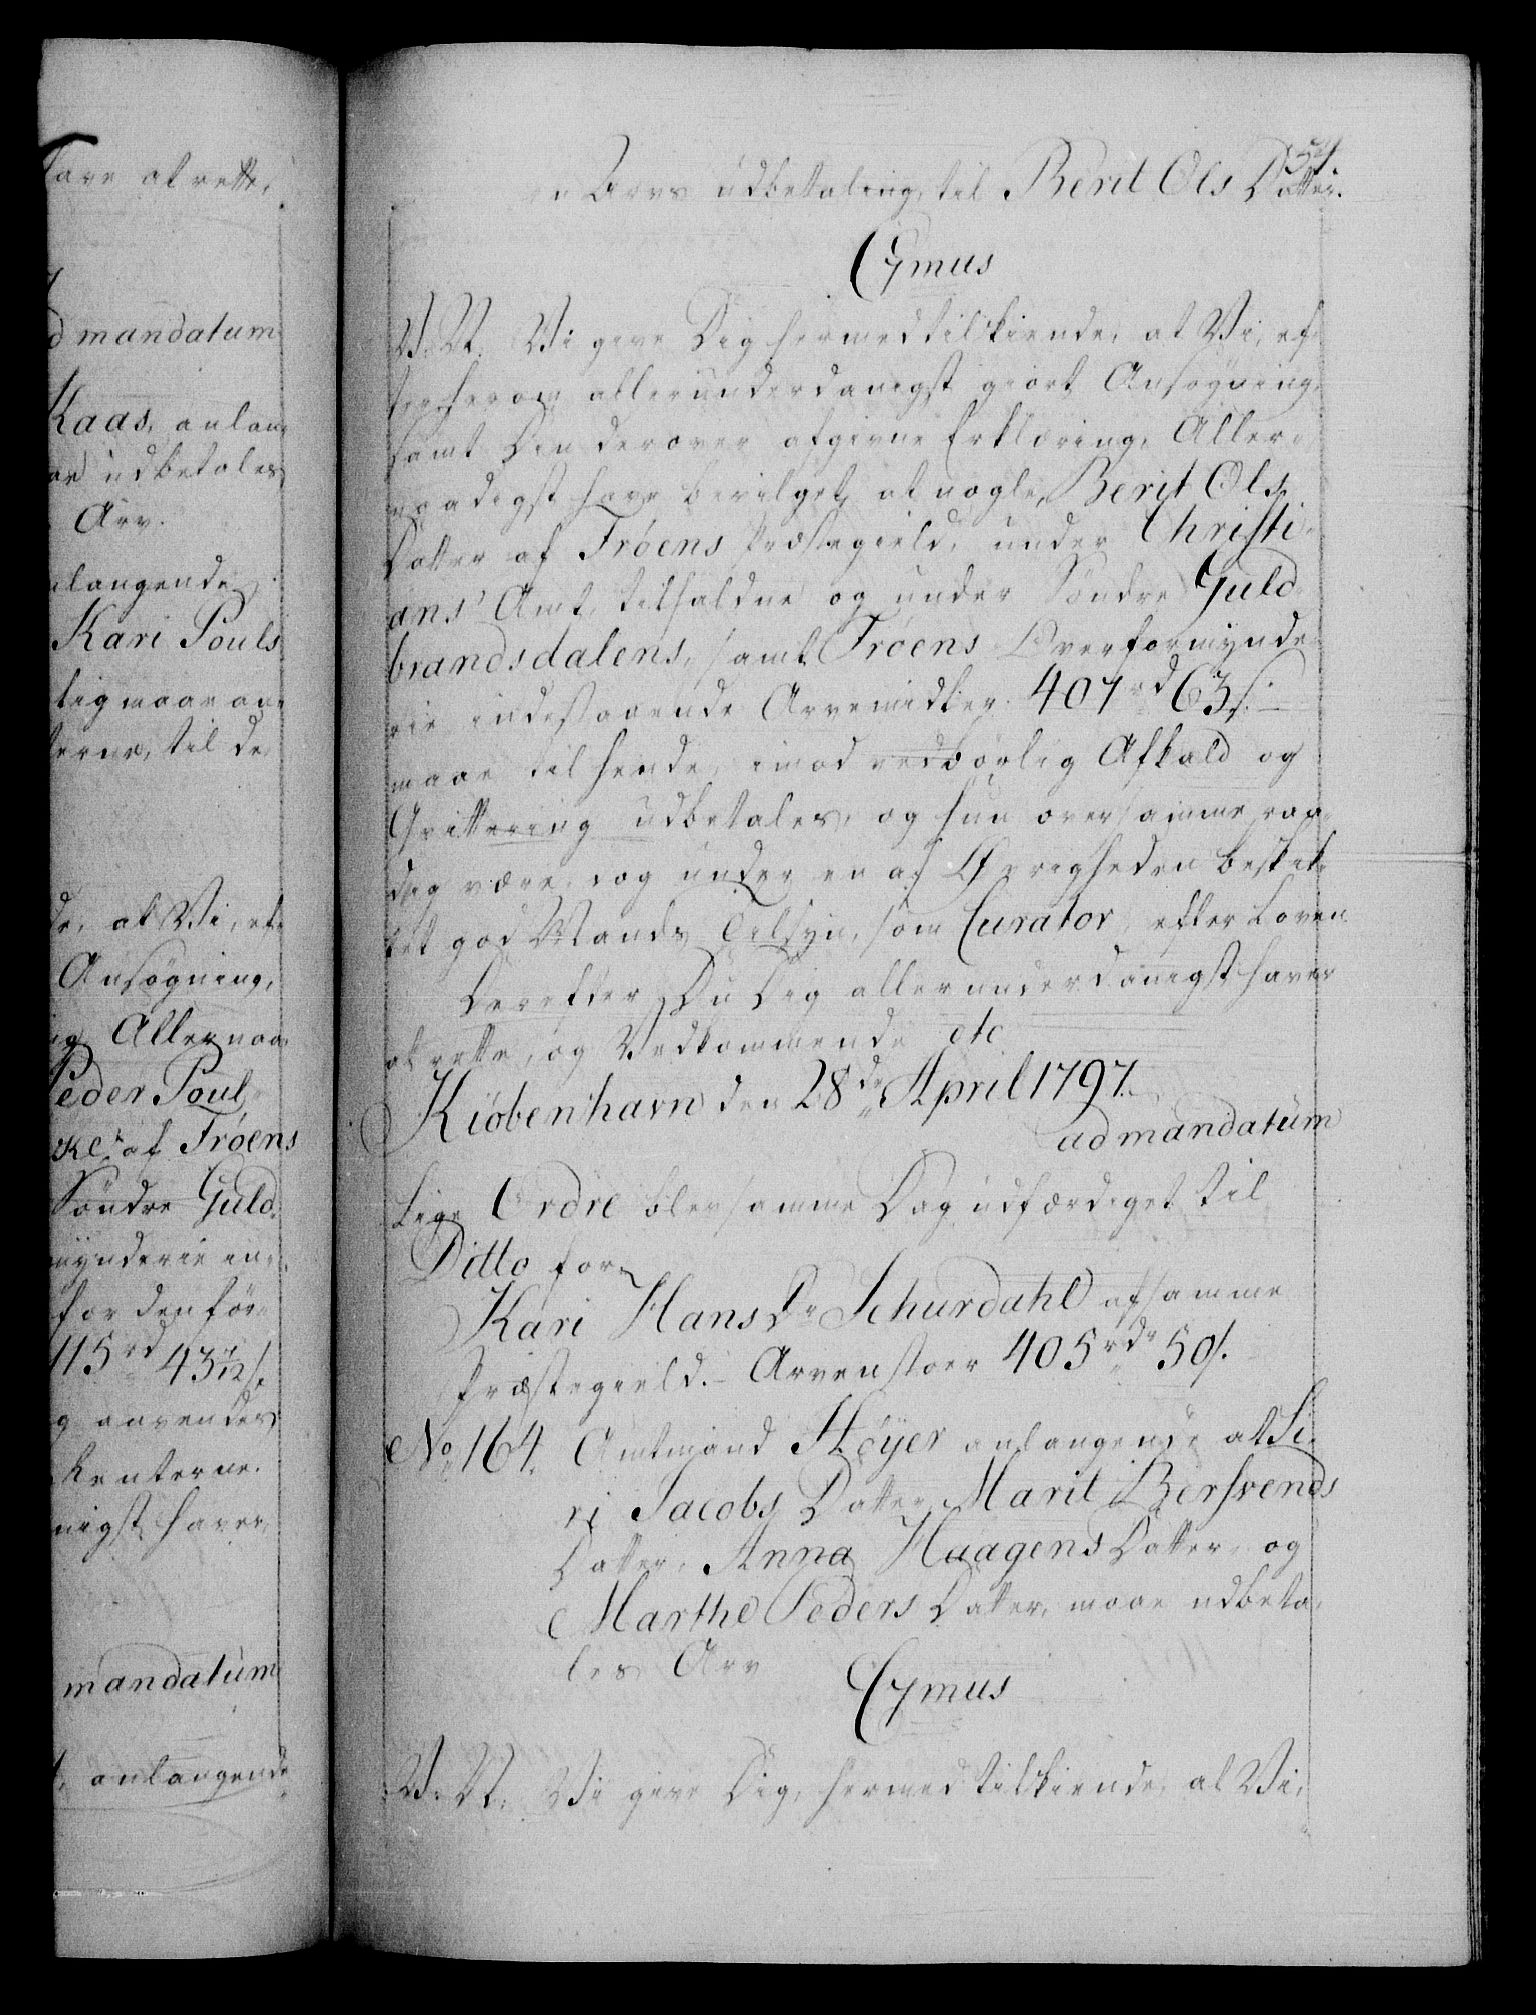 have at rette,
d mandatum
Kaas, anlan-
udbetales
Arv.
nlangende
Kari Pouls
tig maae an-
terne, til de
de, at Vi, ef-
Ansøgning,
ig Allernaa-
Peder Poul-
af Frøens
Søndre Guld-
mynderie in-
for den før-
115 rd 43 1/2 s.
g anvendes
Renterne.
nigst haver
mandatum
anlangende
Arvs udbetaling, til Berit Ols Datter.
Cymus
V. V. Vi give Dig hermed tilkiende, at Vi, ef-
ter herom allerunderdanigst giort Ansøgning,
samt Din derover afgivne Erklæring, Aller-
naadigst have bevilget, at nogle, Berit Ols
Datter af Frøens Præstegield, under Christi-
ans Amt, tilfaldne og under Søndre Guld-
brandsdalens, samt Frøens Overformynde-
rie indestaaende Arvemidler 407 rd 63 s.
maae til hende, imod vedbørlig Afkald og
Qvittering udbetales, og hun over samme raa-
dig være, dog under en af Øvrigheden beskik-
ket god Mands Tilsyn, som Curator, efter Loven
Derefter Du Dig allerunderdanigst haver
at rette, og Vedkommende etc
Kiøbenhavn den 28de April 1797.
ad mandatum
Lige Ordre blev samme Dag udfærdiget til
Ditto for
Kari Hans Dr Schurdahl af samme
Præstegield. - Arven stoer 405 rdr 50 s.
No 164. Amtmand Høyer anlangende at Si-
ri Jacobs Datter, Marit Bersvends
Datter, Anna Haagens Datter, og
Marthe Peders Datter, maae udbeta-
les Arv
Cymus
V. V. Vi give Dig, hermed tilkiende, at Vi,